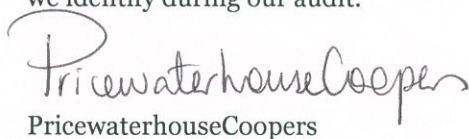 we identify during our audit.
PricewaterhouseCoopers
PricewaterhouseCoopers